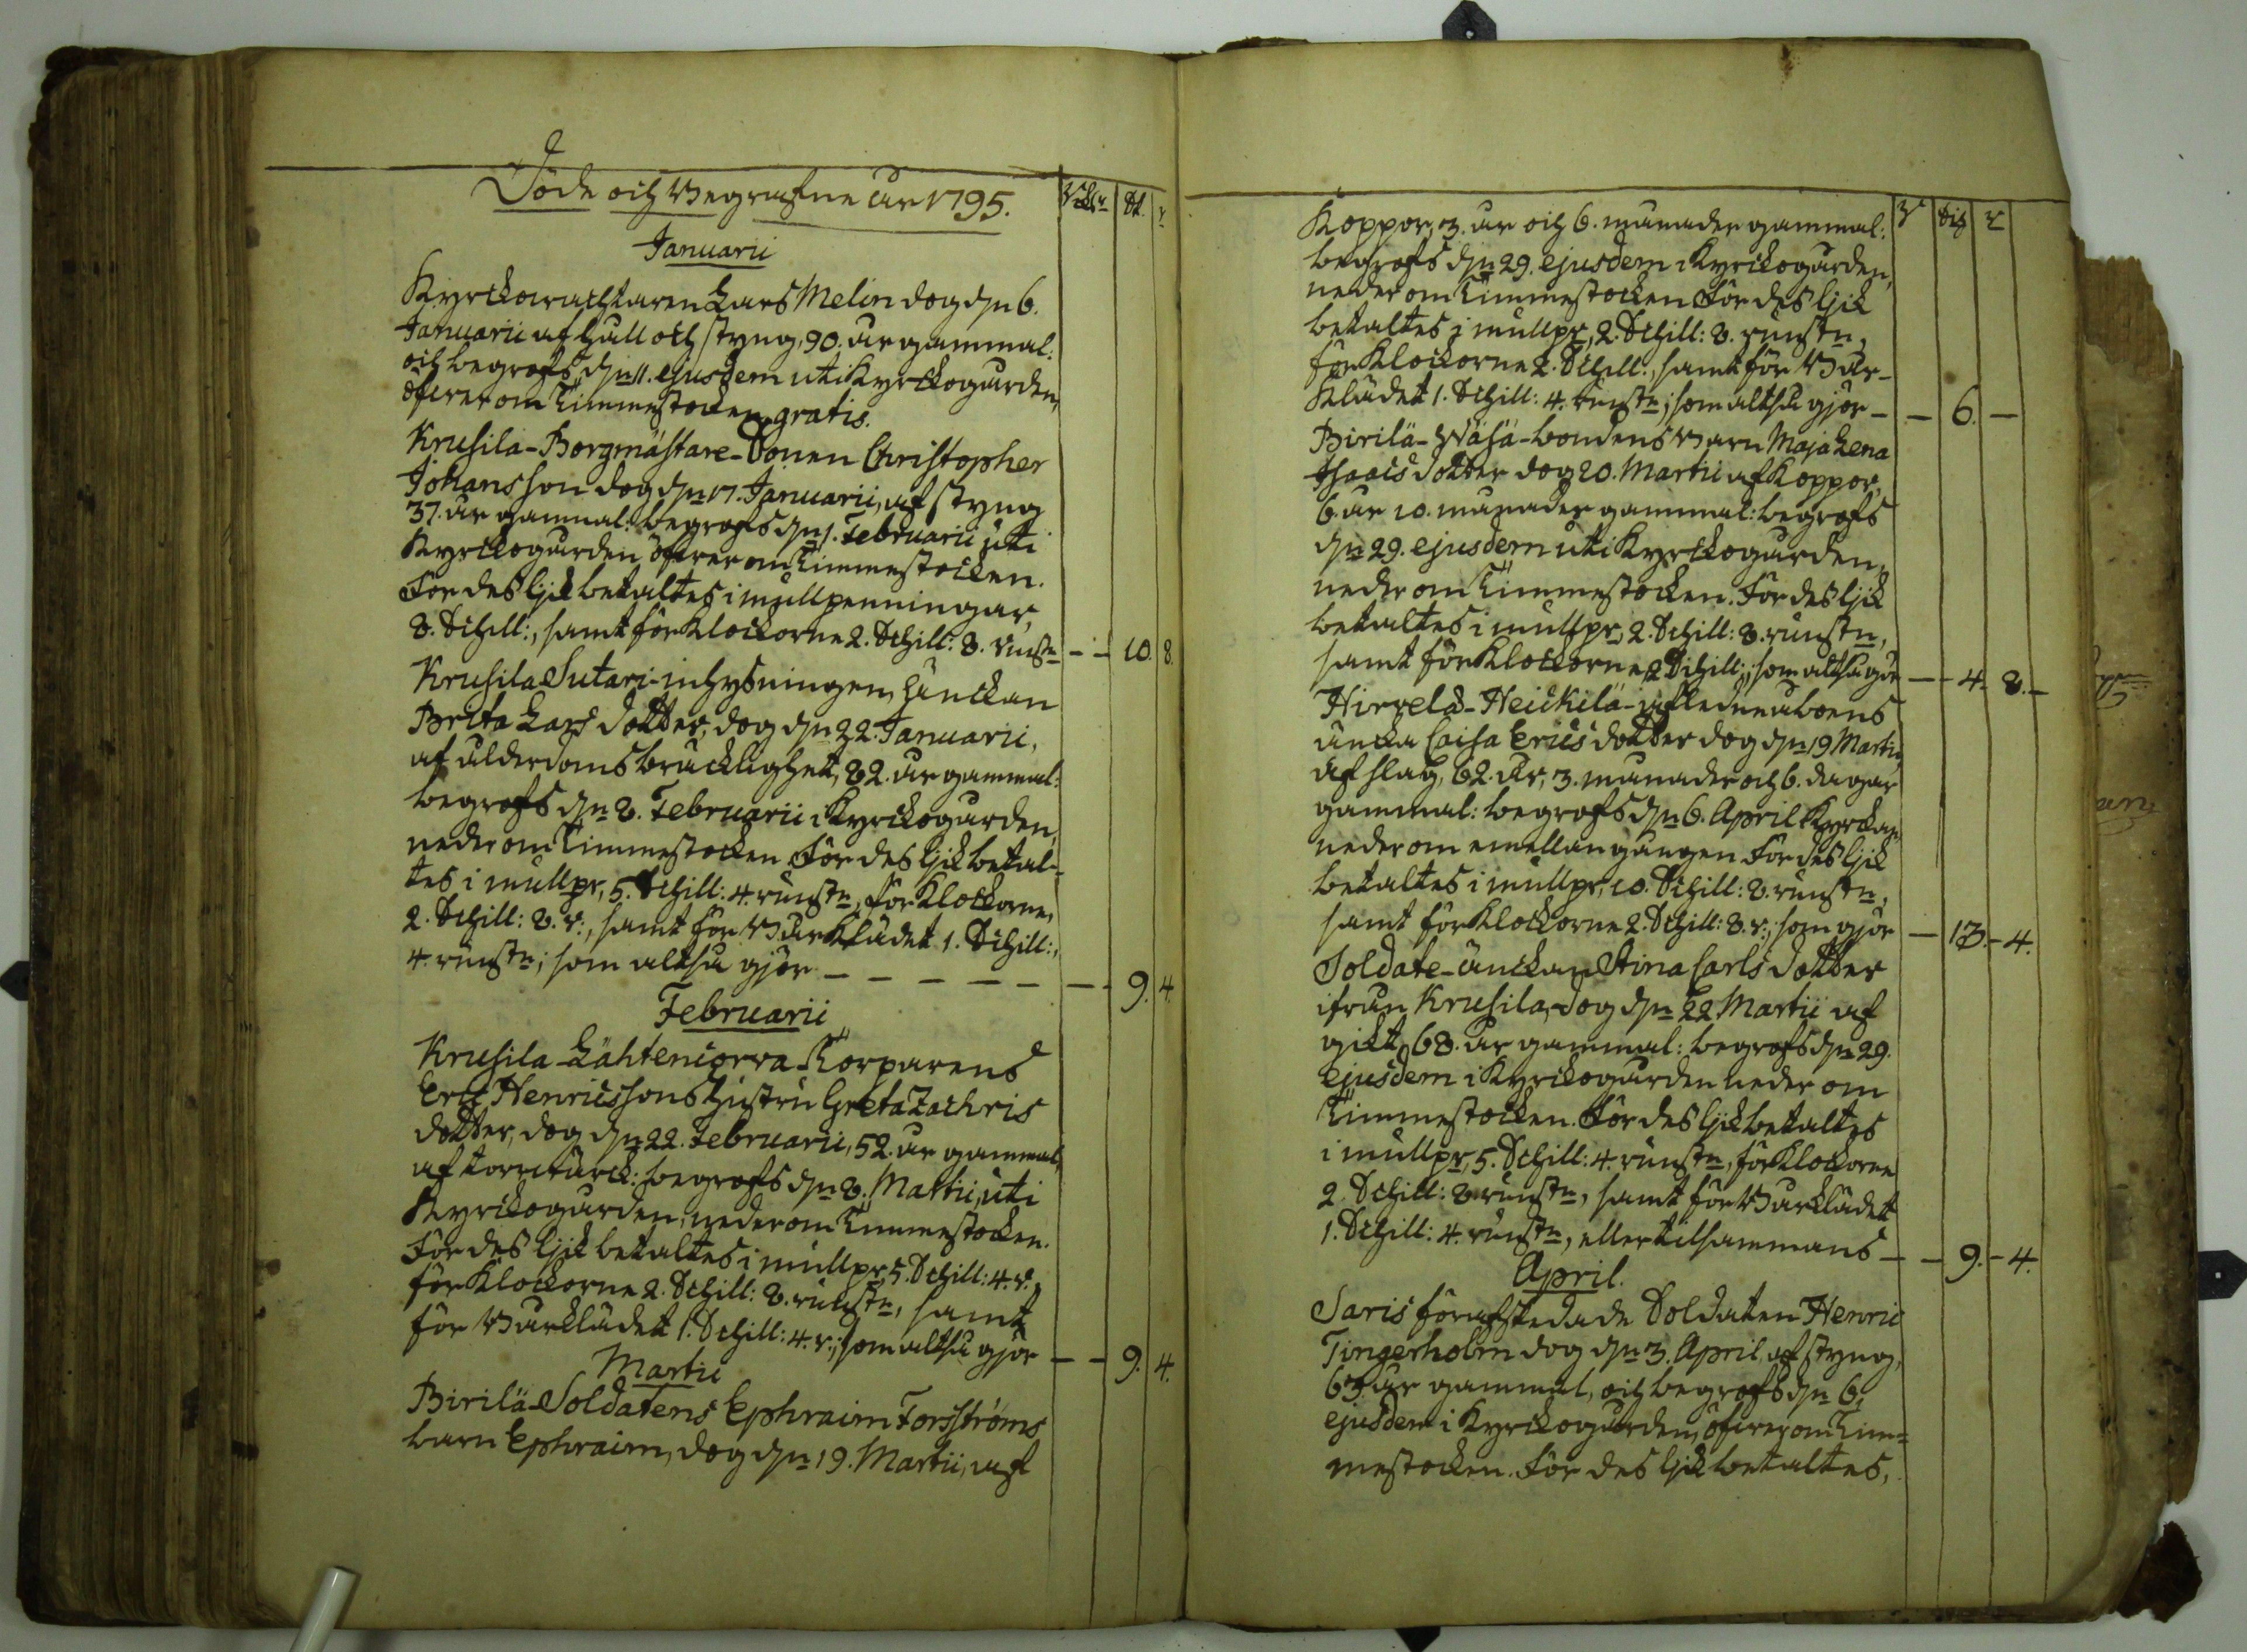 Döde och Begrafne År 1795.
Januarii
Kyrckowachtaren Lars Melin dog d̄n 6.
Januarii af håll och styng, 90. år gammal:
och begrofs d̄n 11. ejusdem uti Kyrckogården,
öfwer om Timmestocken, gratis.
Krusila-Borgmästare-Sonen Christopher
Johansson dog d̄n 17. Januarii, af styng
37. år gammal: begrofs d̄n 1. Februarii uti
Kyrckogården öfwer om Timmestocken.
För des lijk betaltes i mullpenningar,
8. Schill:, samt för Klockorne 2. Schill: 8. runst̄n — — 10. 8.
Krusila Sutari-inhysningen, Änckan
Brita Lars dotter, dog d̄n 22. Januarii,
af ålderdoms bräcklighet, 82. år gammal:
begrofs d̄n 8. Februarii i Kyrckogården,
neder om Timmestocken. För des lijk betal-
tes i mullpr, 5. Schill: 4. runst̄n, för Klockorne,
2. Schill: 8. r:, samt för Bårklädet 1. Schill:,
4. runst̄n; som altså gjör — — — — — — 9. 4.
Februarii
Krusila-Lähtencorva-Torparens
Eric Henricssons hustru Greta Zachris
dotter, dog d̄n 22. Februarii, 52. år gammal,
af torrwärck: begrofs d̄n 8. Martii, uti
Kyrckogården, neder om Timmestocken.
För des lijk betaltes i mullpr, 5. Schill: 4. r.,
för Klockorne 2. Schill: 8. runst̄n, samt
för Bårklädet 1. Schill: 4. r.; som altså gjör — — 9. 4.
Martii
Birilä-Soldatens Ephraim Forsströms
barn Ephraim, dog d̄n 19. Martii, af
Koppor, 3. år och 6. månader gammal:
begrofs d̄n 29. ejusdem i Kyrckogården,
neder om Timmestocken. För des lijk
betaltes i mullpr, 2. Schill: 8. runst̄n,
för Klockorne 2. Schill:, samt för Bår-
klädet 1. Schill: 4. runst̄n; som altså gjör — — 6. —
Birilä-Wäsä-bondens Barn Maja Lena
Isaacs dotter dog 20. Martii af Koppor,
6. år 10. månader gammal: begrofs
d̄n 29. ejusdem uti Kyrckogården,
neder om Timmestocken. För des lijk
betaltes i mullpr, 2. Schill: 8. runst̄n,
samt för Klockorne, 2 Schill:; som altså gör — — 4. 8. —
Hirvelä-Heickilä-afledne aboens
äncka Caisa Erics dotter dog d̄n 19 Martii,
af slag, 62. år, 3. månader och 6. dagar
gammal: begrofs d̄n 6. April Kyrckan
neder om emellan gången. För des lijk
betaltes i mullpr, 10. Schill: 8. runst̄n,
samt för Klockorne 2. Schill: 8. r:, som gjör — 13. — 4.
Soldate-änckan Stina Carls dotter
ifrån Krusila, dog d̄n 22 Martii af
gikt, 68. år gammal: begrofs d̄n 29.
ejusdem i Kyrckogården neder om
Timmestocken. För des lijk betaltes
i mullpr, 5. Schill: 4. runst̄n, för Klockorne
2. Schill: 8. runst̄n, samt för Bårklädet
1. Schill: 4. runst̄n, eller tilsammans — — 9. — 4.
April.
Saris för afskedade Soldaten Henric
Tingerholm dog d̄n 3. April, af styng,
63. år gammal, och begrofs d̄n 6.
ejusdem i Kyrckogården, öfwer om Tim-
mestocken. För des lijk betaltes,